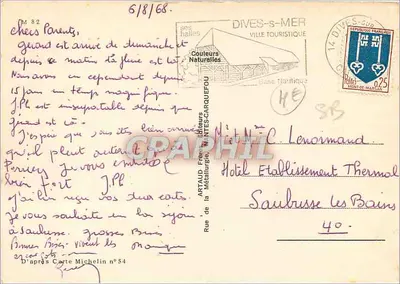 6/8/68.
M 82
chers Parents,
Gérard est arrivé dimanche et
depuis ce matin la pluie est là
Nous avons eu cependant depuis
15 jours un temps magnifique.
JPh est insupportable depuis que
Gérard est là.
J'espère que vous êtes bien
qu'il pleut autant à
Perriers Je vous embrasse
bien fort JPh
J'ai bien reçu vos deux cartes.
je vous souhaite un bon séjour
à Saubusse. grosses Bises
Bonnes Bises vivent les
D'après Carte Michelin n°54
Couleurs
Naturelles
ARTAUD Frères, Éditeurs
Rue de la Métallurgie, NANTES-CARQUEFOU
ses
halles
DIVES-s-MER
VILLE TOURISTIQUE
14 DIVES-SUR
MONT-DE-MARSAN
0,25
HE
SB
M et Mme C. Lenormand
Hôtel Etablissement Thermal
Saubusse les Bains
40.
CPAPHIL.COM